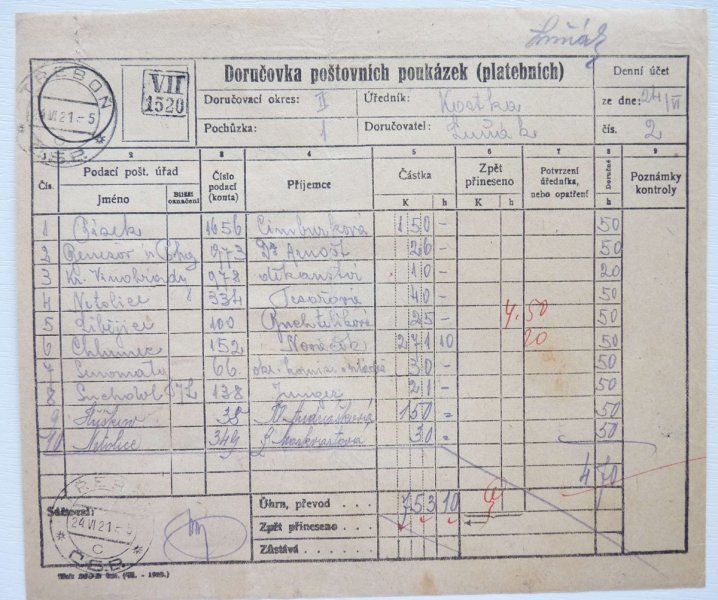 Luňák
TŘEBOŇ
24 VI 21.-5
Č.S.P.
VII
1520
Doručovka poštovních poukázek (platebních)
Denní účet
Doručovací okres: II Úředník: Kostka
ze dne: 24/VI
Pochůzka: 1 Doručovatel: Luňák
čís. 2
1 2 3 4 5 6 7 8 9
Čís. Podací pošt. úřad Číslo podací (konta) Příjemce Částka Zpět přineseno Potvrzení úředníka, nebo opatření Doručné Poznámky kontroly
Jméno Bližší označení K h K h h
1 Písek 1656 Cimburková 150 - 50
2 Benešov u Prhy 973 Dr Arnošt 26 - 50
3 Kr. Vinohrady 978 děkanství 10 - 20
4 Netolice 334 Tesařová 40 - 50
5 Libějice 100 25 - 4.50 50
6 Chlumec 152 Nováček 271 10 20 50
7 66 30 - 50
8 Suchdol 138 Junger 21 - 50
9 38 150 = 50
10 Netolice 349 30 = 50
4 70
Úhrn, převod 753 10
Zpět přineseno
Zůstává
24 VI 21.-5
C
Č.S.P.